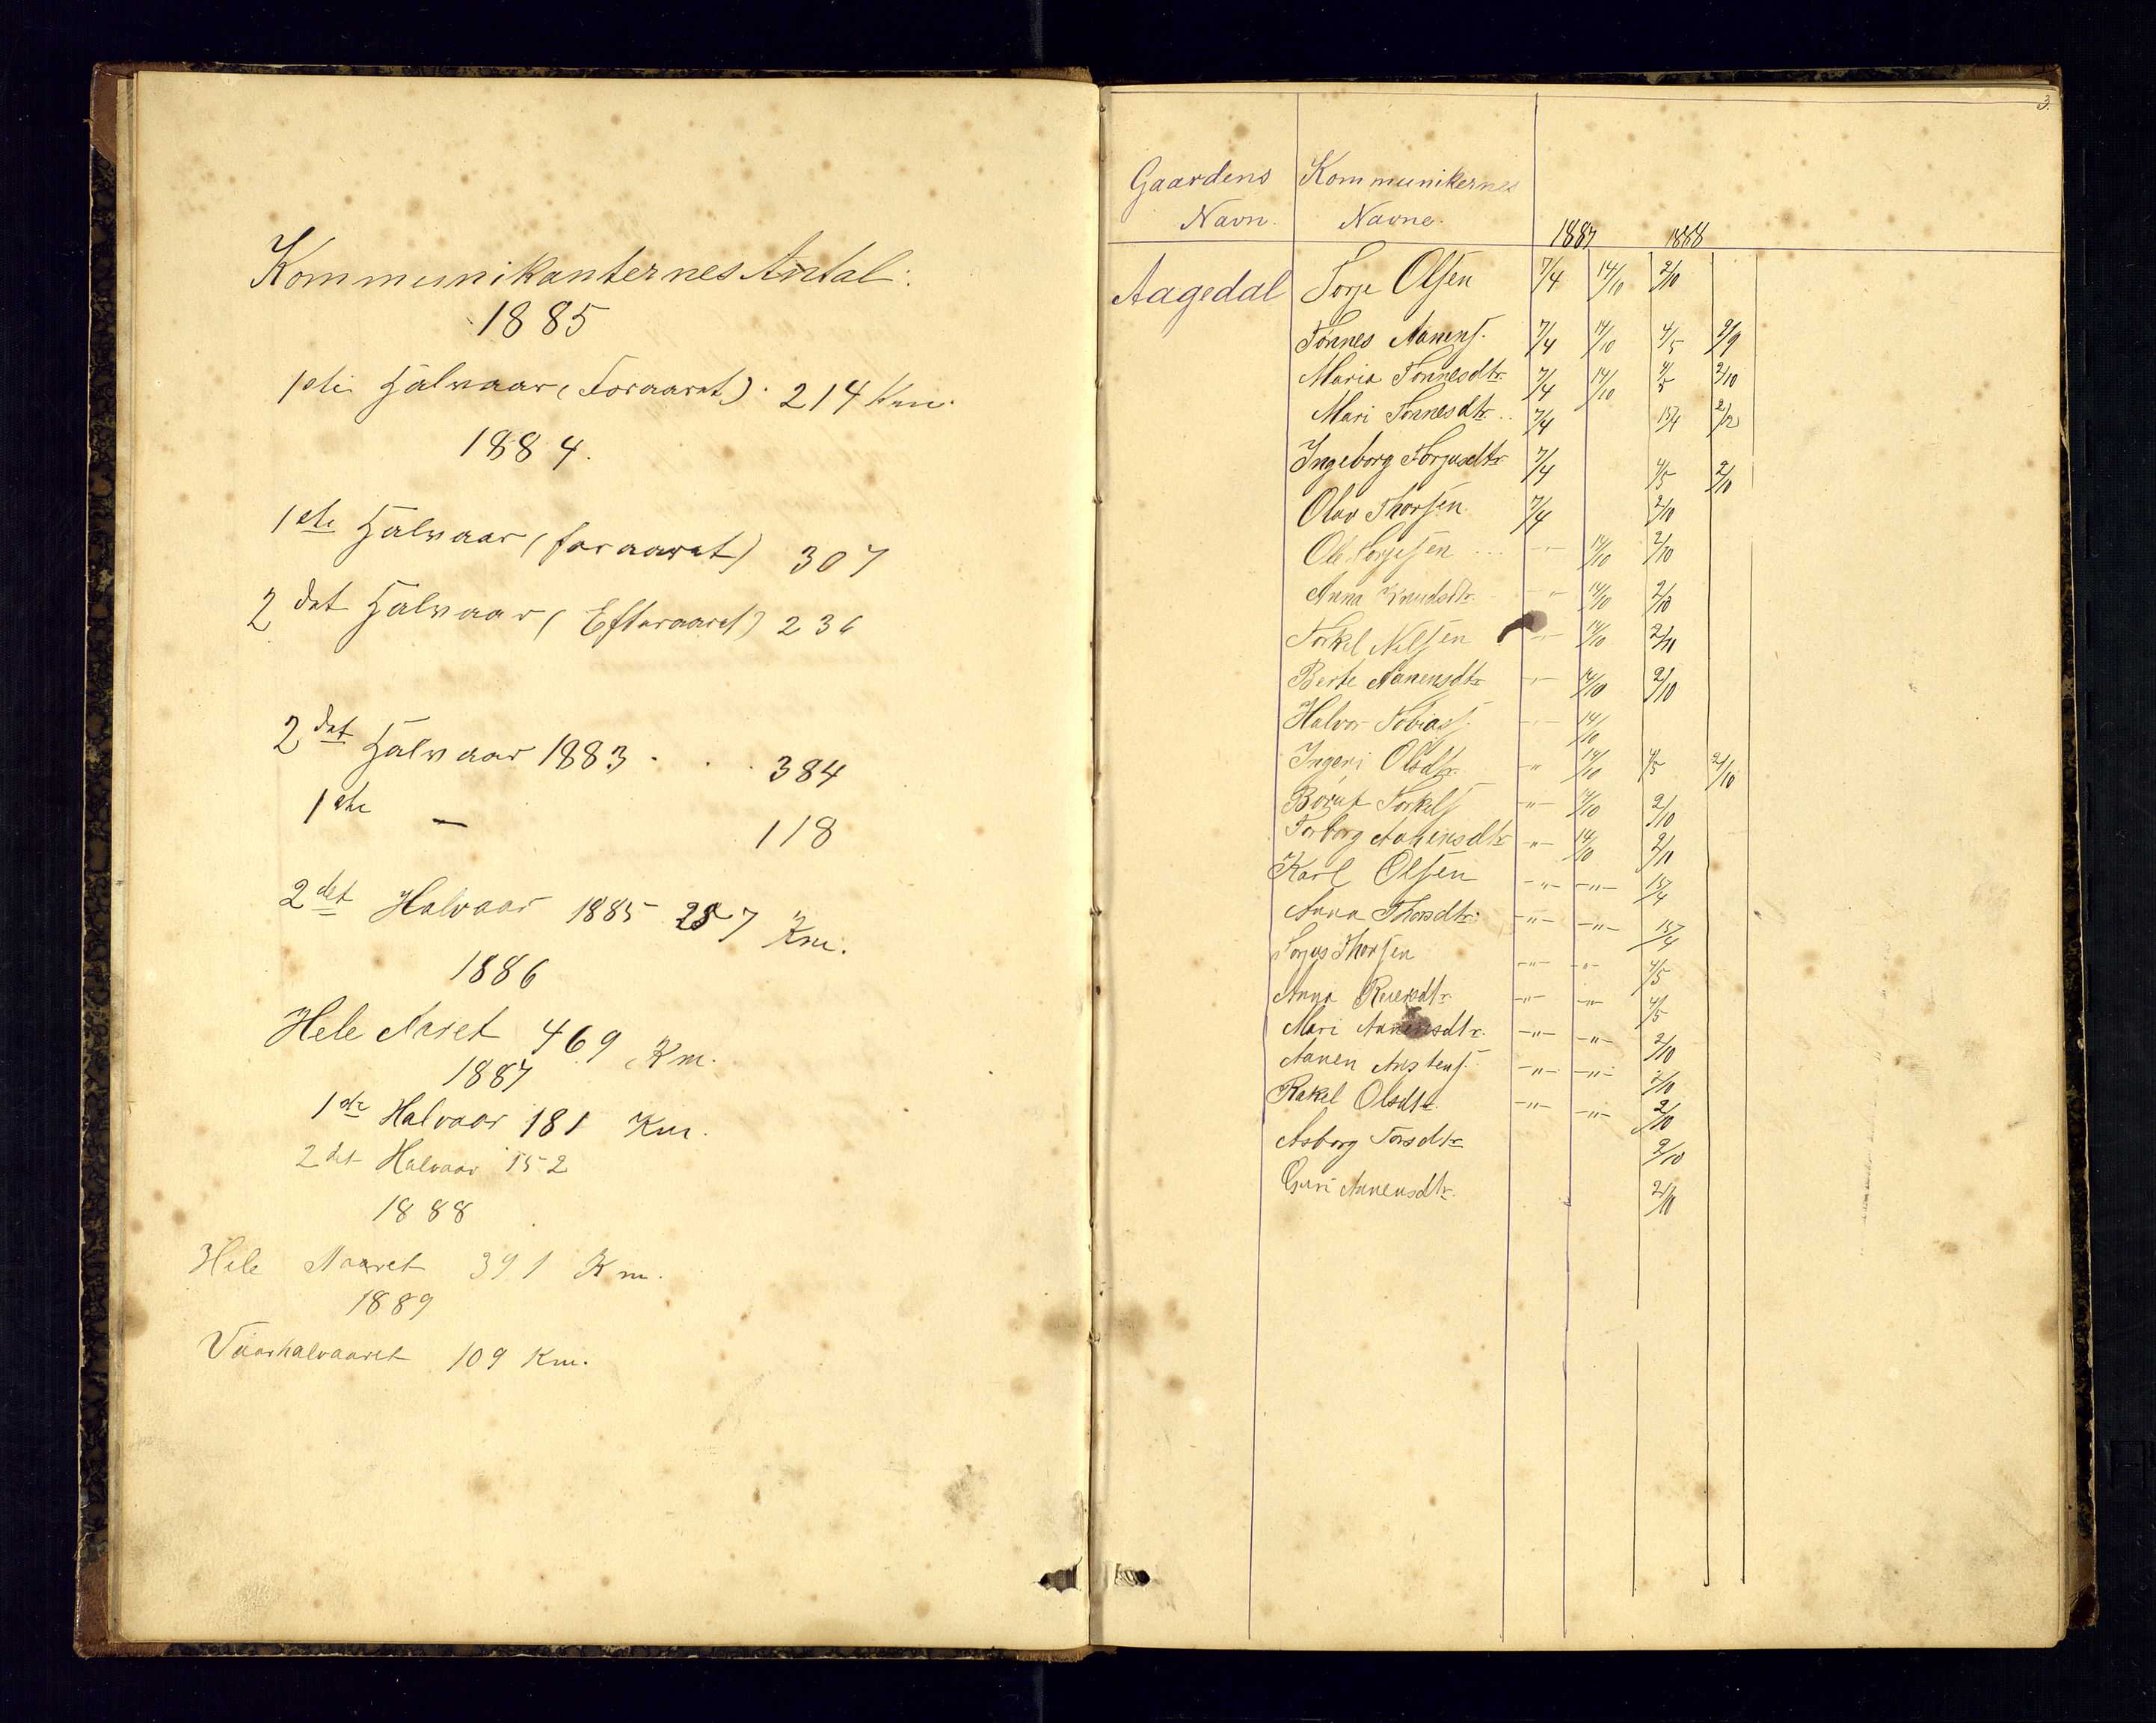 Kommunikanternes Antal:
1885
1ste Halvaar (Foraaret). 214 Km.
1884.
1ste Halvaar (foraaret) 307
2det Halvaar (Efteraaret) 236
2det Halvaar 1883 . . . 384
1ste — 118
2det Halvaar 1885 257 Km.
1886
Hele Aaret 469 Km.
1887
1ste Halvaar 181 Km.
2det Halvaar 152
1888
Hele Aaret 391 Km.
1889
Vaarhalvaaret 109 Km.
3.
Gaardens Kommunikernes
Navn. Navne.
1887 1888
Aagedal Torje Olsen 7/4 14/10 2/10
Tønnes Aanens. 7/4 14/10 4/5 2/9
Maria Tønnesdtr. 7/4 14/10 4/5 2/10
Mari Tønnesdtr. 7/4 15/4 2/12
Ingeborg Torjusdtr 7/4 4/5 2/10
Olav Thorsen 7/4 2/10
Ole Torjesen ... -"- 14/10 2/10
Anna Knudsdtr. - " 14/10 2/10
Torkel Nilsen -"- 14/10 2/10
Berte Aanensdtr -"- 14/10 2/10
Halvor Tobiass. -"- 14/10
Ingeri Olsdtr. -" 14/10 4/5 2/10
Torkels -"- 14/10 2/10
Torborg Aanensdtr -"- 14/10 2/10
Karl Olsen -"- -"- 15/4
Anna Thorsdtr. -"- -"- 15/4
Torjus Thorsen -"- -"- 4/5
Anna -"- -"- 4/5
Mari Aanensdtr. -"- -"- 2/10
Aanen Austens. -"- -"- 2/10
Rakel Olsdtr. -"- -"- 2/10
Asborg Torsdtr 2/10
Guri Aanensdtr. 2/10